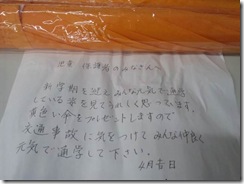 児童 保護者のみなさんへ
新学期を迎えみんな元気で通学
している姿を見てうれしく思ってます。
黄色い傘をプレゼントしますので
交通事故に気をつけてみんな仲良く
元気で通学して下さい。
4月吉日